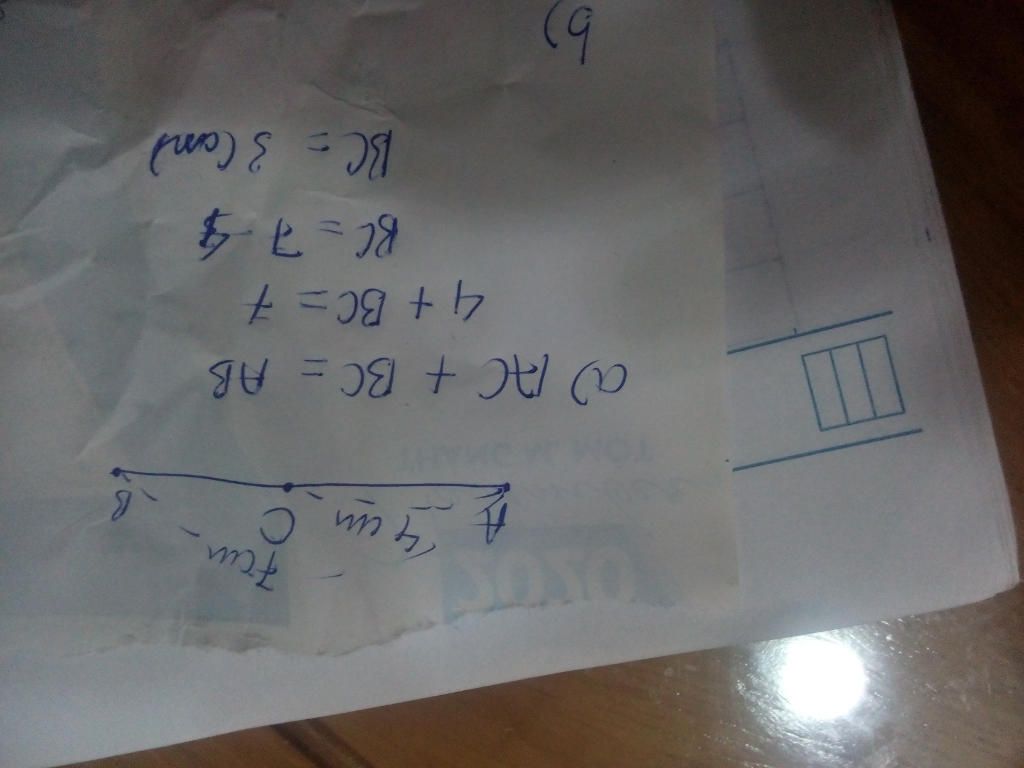 7cm
A 4cm C B
a) AC + BC = AB
4 + BC = 7
BC = 7 - 4
BC = 3 (cm)
b)
2020
THÁNG M. MỘT